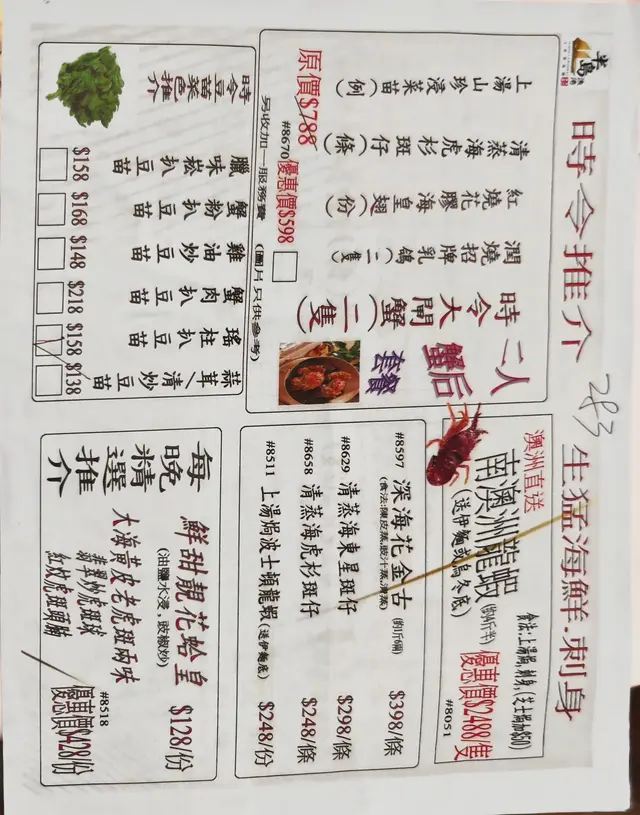 半島
時令推介
二人
蟹后
套餐
時令大閘蟹(二隻)
潤燒招牌乳鴿(二隻)
紅燒花膠海皇翅(份)
清蒸海虎杉斑仔(條)
上湯山珍浸菜苗(例)
原價$788
#8670優惠價$598
另收加一服務費 (圖片只供參考)
時令豆苗菜色推介
臘味崧扒豆苗 $158
蟹粉扒豆苗 $168
雞油炒豆苗 $148
蟹肉扒豆苗 $218
瑤柱扒豆苗 $158
蒜茸/清炒豆苗 $138
生猛海鮮.刺身
澳洲直送
南澳洲龍蝦(約4斤半)
(送伊麵或烏冬底)
食法:上湯焗,刺身,(芝士焗加$50)
優惠價$2488/隻
#8051
#8597 深海花金古(約1斤6兩) $398/條
(食法:陳皮蒸,豉汁蒸,清蒸)
#8629 清蒸海東星斑仔 $298/條
#8658 清蒸海虎杉斑仔 $248/條
#8511 上湯焗波士頓龍蝦(送伊麵底) $248/份
每晚精選推介
鮮甜靚花蛤皇 $128/份
(油鹽水浸、豉椒炒)
大海黃皮老虎斑兩味
翡翠炒虎斑球
紅炆虎斑頭腩
#8518
優惠價$428/份